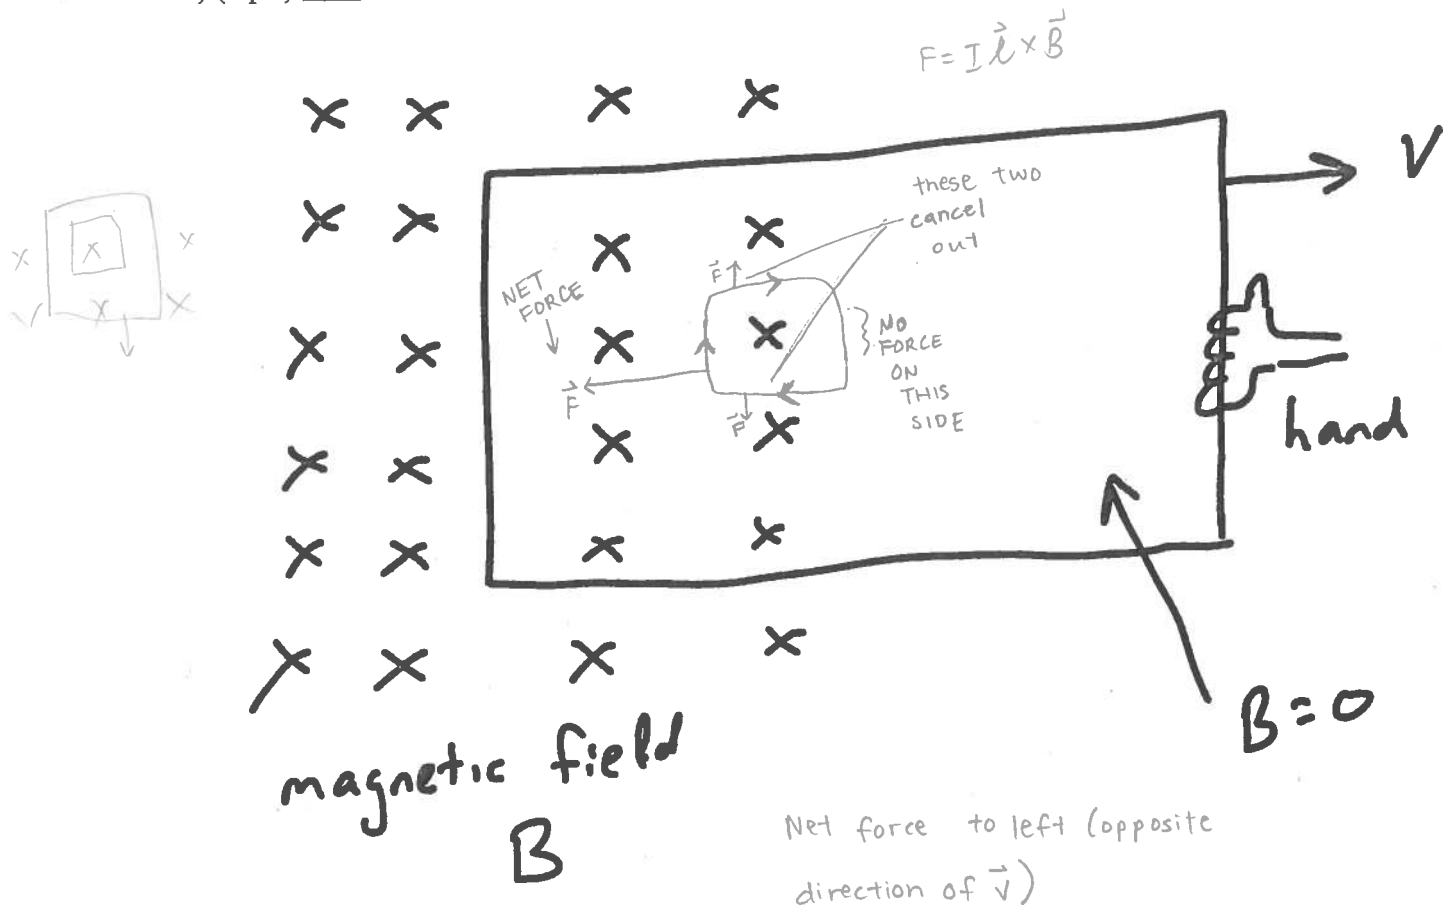 F = I l⃗ × B⃗
V
these two
cancel
out
F⃗
NET
FORCE
NO
FORCE
ON
THIS
SIDE
F⃗
F⃗
hand
B=0
magnetic field
B
Net force to left (opposite
direction of v⃗)